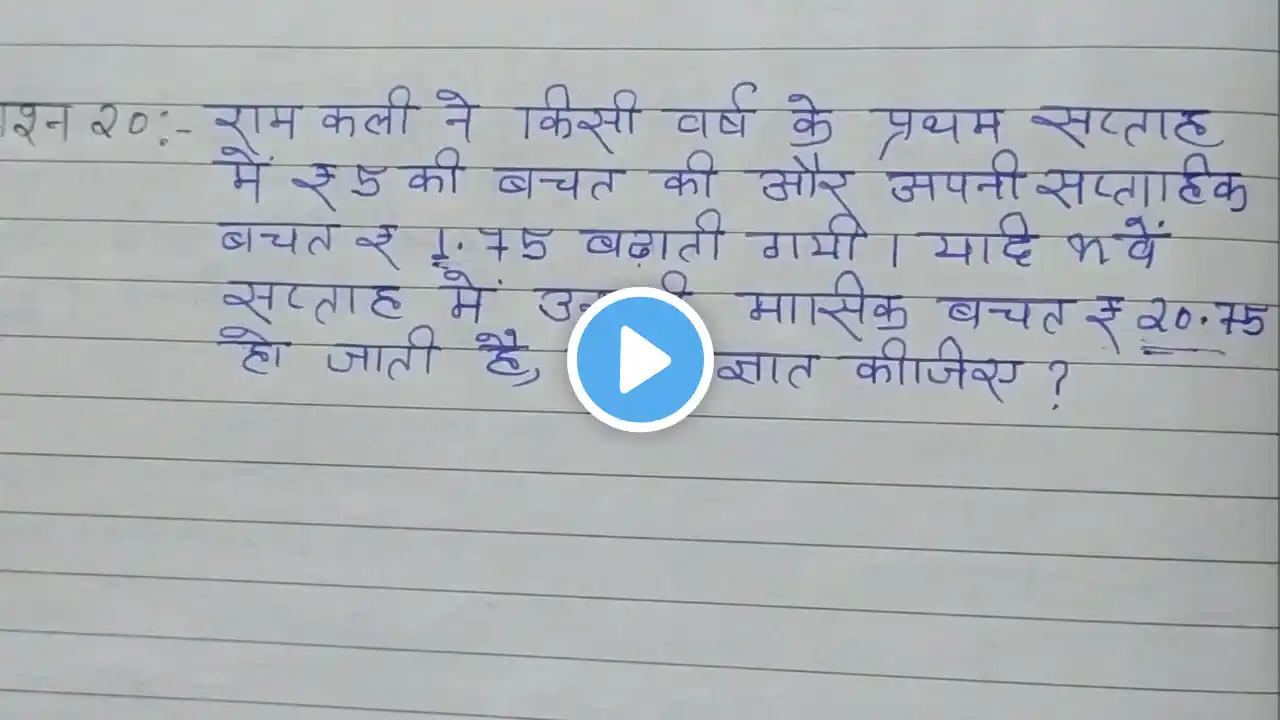 प्रश्न 20:- राम कली ने किसी वर्ष के प्रथम सप्ताह
में ₹ 5 की बचत की और अपनी सप्ताहिक
बचत ₹ 1.75 बढ़ाती गयी। यदि n वें
सप्ताह में मासिक बचत ₹ 20.75
हो जाती है, ज्ञात कीजिए ?